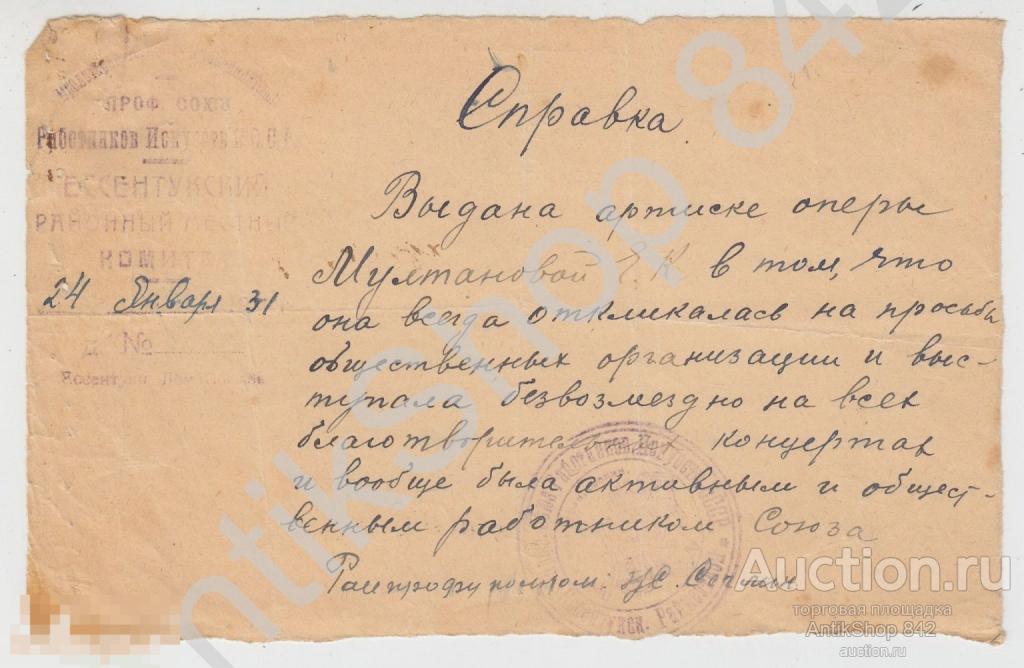 ПРОФ. СОЮЗ
Работников Искусств
ЕССЕНТУКСКИЙ
РАЙОННЫЙ МЕСТНЫЙ
КОМИТЕТ
24 Января 31 г.
№
Справка
Выдана артиске оперы
Мултановой Е К в том, что
она всегда откликалась на просьбы
общественных организации и выс-
тупала безвозмездно на всех
благотворительных концертах
и вообще была активным и общест-
венным работником Союза
Auction.ru
торговая площадка
AntikShop 842
auction.ru
antikshop 842